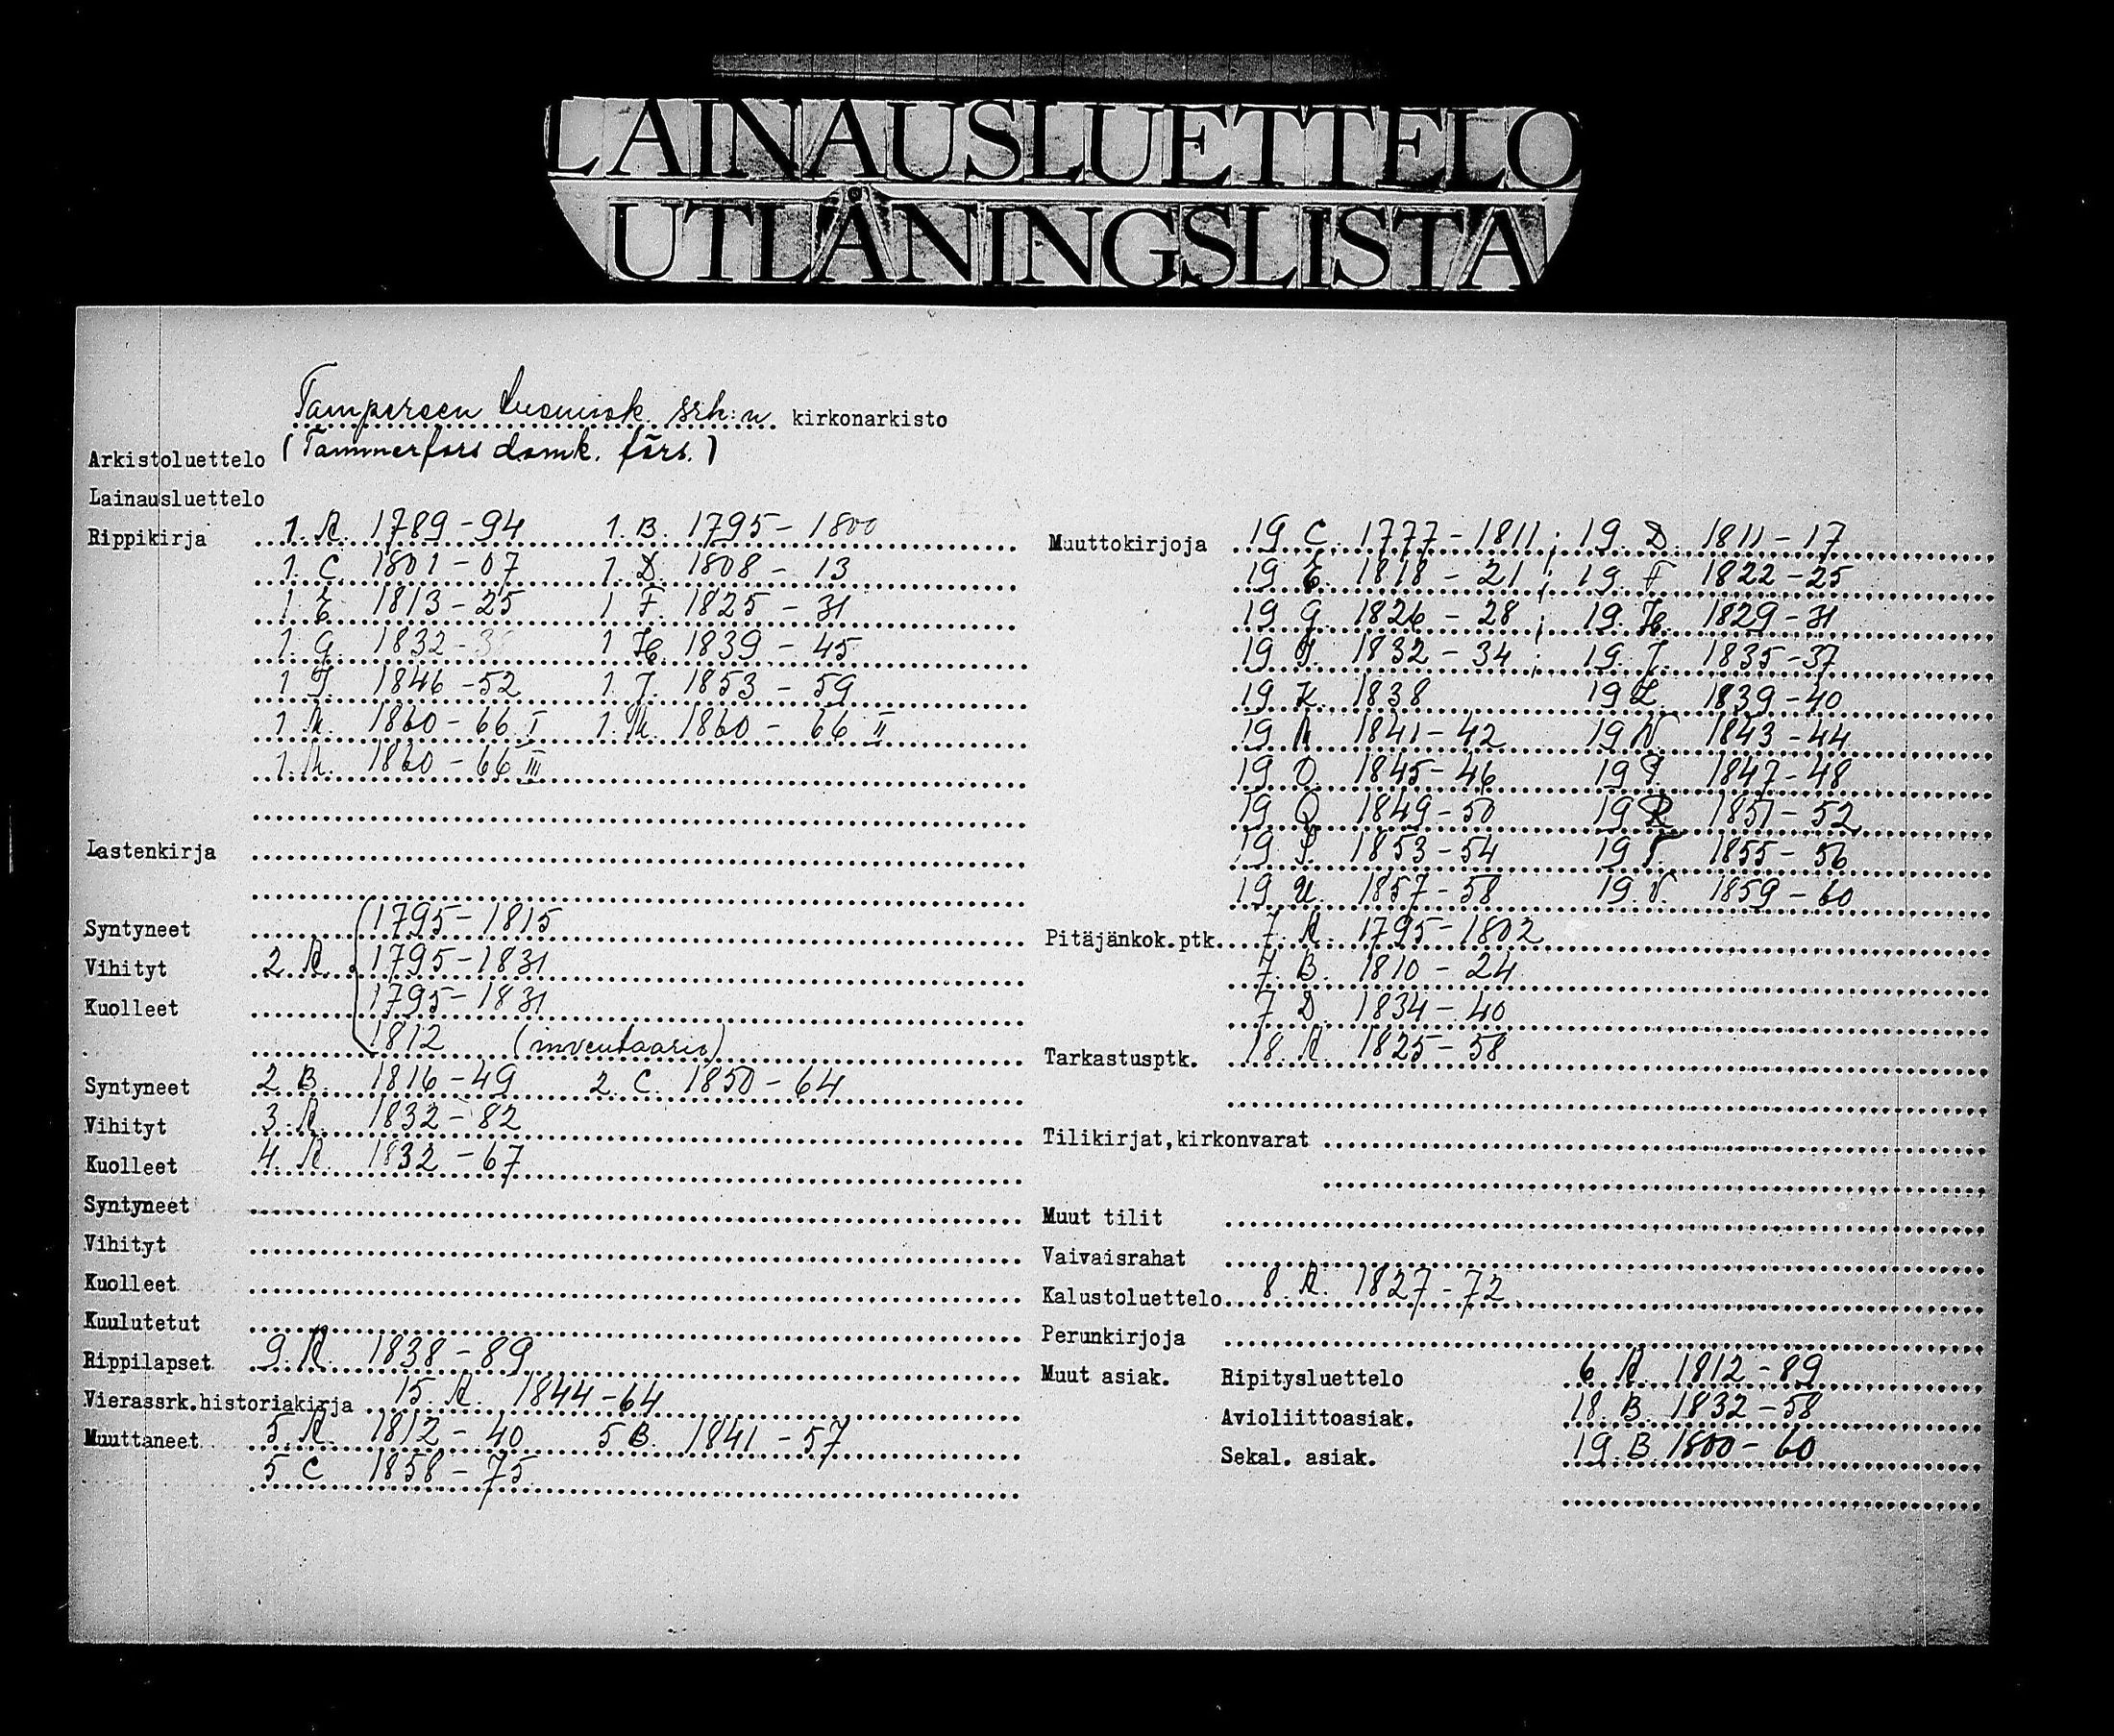 LAINAUSLUETTELO
UTLÅNINGSLISTA
Tampereen tuomiok. srh:n kirkonarkisto
Arkistoluettelo (Tammerfors domk. förs.)
Lainausluettelo
Rippikirja 1. A. 1789-94 1. B. 1795-1800
1. C. 1801-07 1. D. 1808-13
1 E. 1813-25 1 F. 1825-31
1. G. 1832- 1 H. 1839-45
1 I. 1846-52 1. J. 1853-59
1. 1860-66 I 1. 1860-66 II
1. 1860-66 III
Lastenkirja
Syntyneet 1795-1815
Vihityt 2 A. 1795-1831
Kuolleet 1795-1831
1812 (inventaario)
Syntyneet 2 B. 1816-49 2. C. 1850-64
Vihityt 3. A. 1832-82
Kuolleet 4. A. 1832-67
Syntyneet
Vihityt
Kuolleet
Kuulutetut
Rippilapset 9. A. 1838-89
Vierassrk.historiakirja 15. A. 1844-64
Muuttaneet 5. A. 1812-40 5 B. 1841-57
5 C 1858-75
Muuttokirjoja 19 C. 1777-1811; 19. D. 1811-17
19 E. 1818-21; 19. F 1822-25
19 G. 1826-28; 19. H. 1829-31
19 I. 1832-34; 19. J. 1835-37
19 K. 1838 19 L. 1839-40
19 M 1841-42 19 N. 1843-44
19 O. 1845-46 19 P. 1847-48
19 Q 1849-50 19 R 1851-52
19 S. 1853-54 19 T. 1855-56
19 U. 1857-58 19. V. 1859-60
Pitäjänkok.ptk. 7. A. 1795-1802
7. B. 1810-24
7 D. 1834-40
Tarkastusptk. 18. A. 1825-58
Tilikirjat,kirkonvarat
Muut tilit
Vaivaisrahat
Kalustoluettelo 8. A. 1827-72
Perunkirjoja
Muut asiak. Ripitysluettelo 6 A. 1812-89
Avioliittoasiak. 18. B. 1832-58
Sekal. asiak. 19. B. 1800-60